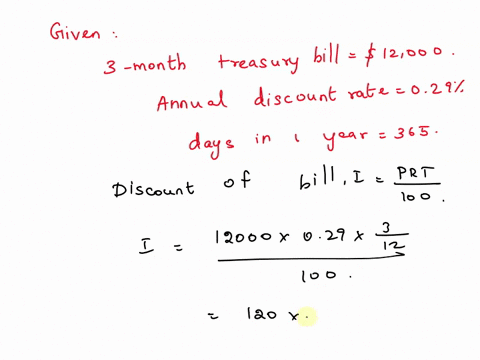 Given :
3-month treasury bill = $ 12,000.
Annual discount rate = 0.29%
days in 1 year = 365.
Discount of bill, I = PRT / 100.
I = 12000 x 0.29 x 3/12
100.
= 120 x